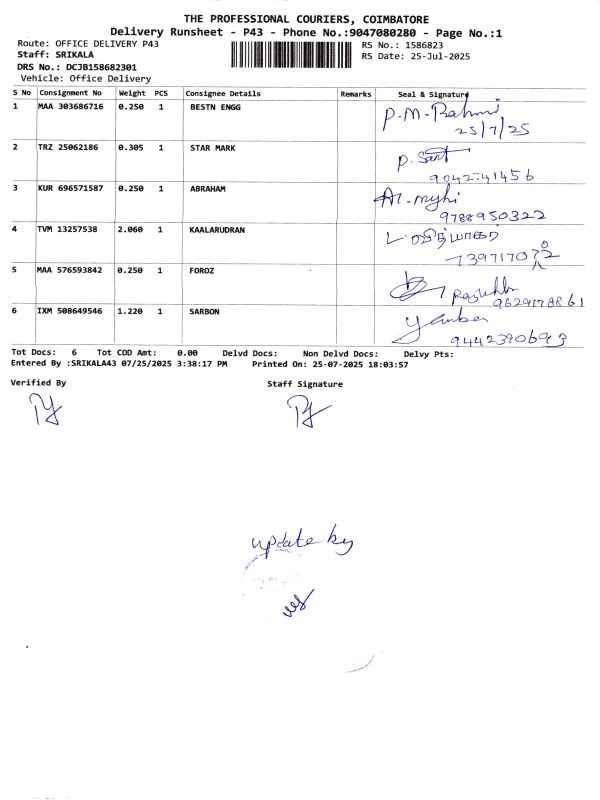 THE PROFESSIONAL COURIERS, COIMBATORE
Delivery Runsheet - P43 - Phone No.:9047080280 - Page No.:1
Route: OFFICE DELIVERY P43
Staff: SRIKALA
DRS No.: DCJB158682301
Vehicle: Office Delivery
RS No.: 1586823
RS Date: 25-Jul-2025
S No Consignment No Weight PCS Consignee Details Remarks Seal & Signature
1 MAA 303686716 0.250 1 BESTN ENGG P.M.
25/7/25
2 TRZ 25062186 0.305 1 STAR MARK P.
9042741456
3 KUR 696571587 0.250 1 ABRAHAM
9788950322
4 TVM 13257538 2.060 1 KAALARUDRAN
5 MAA 576593842 0.250 1 FOROZ
9629178861
6 IXM 508649546 1.220 1 SARBON
9442390693
Tot Docs: 6 Tot COD Amt: 0.00 Delvd Docs: Non Delvd Docs: Delvy Pts:
Entered By :SRIKALA43 07/25/2025 3:38:17 PM Printed On: 25-07-2025 18:03:57
Verified By Staff Signature
update by